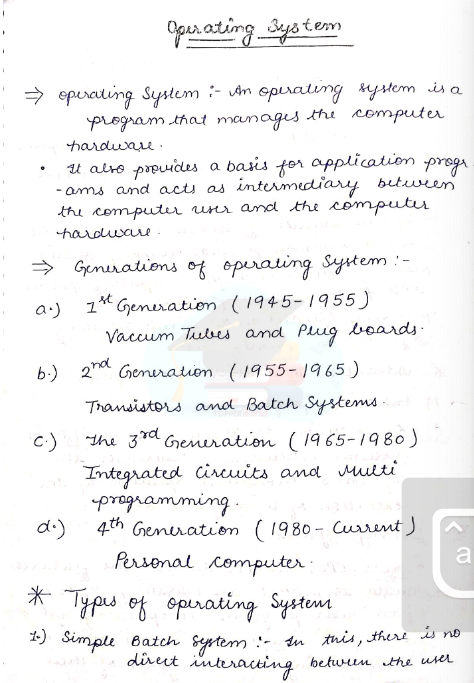 Operating System
⇒ operating System :- An operating system is a
program that manages the computer
hardware.
• It also provides a basis for application progr
-ams and acts as intermediary between
the computer user and the computer
hardware.
⇒ Generations of operating System :-
a.) 1st Generation (1945-1955)
Vaccum Tubes and Plug boards.
b.) 2nd Generation (1955-1965)
Transistors and Batch Systems.
c.) The 3rd Generation (1965-1980)
Integrated Circuits and Multi
programming.
d.) 4th Generation (1980- Current)
Personal Computer.
* Types of operating System
1.) Simple Batch System :- In this, there is no
direct interacting between the user
a